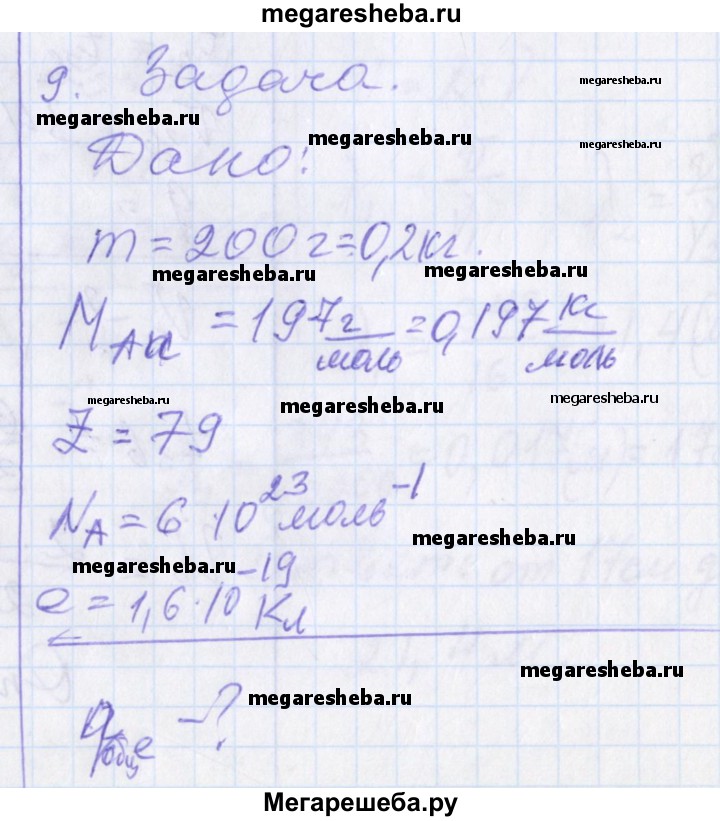 megaresheba.ru
9. Задача.
megaresheba.ru
megaresheba.ru
megaresheba.ru
Дано:
m = 200 г = 0,2 кг.
megaresheba.ru
megaresheba.ru
M_Au = 197 г/моль = 0,197 кг/моль
megaresheba.ru
megaresheba.ru
megaresheba.ru
Z = 79
N_A = 6·10^23 моль^-1
megaresheba.ru
megaresheba.ru
e = 1,6·10^-19 Кл
megaresheba.ru
q общ e - ?
megaresheba.ru
Мегарешеба.ру